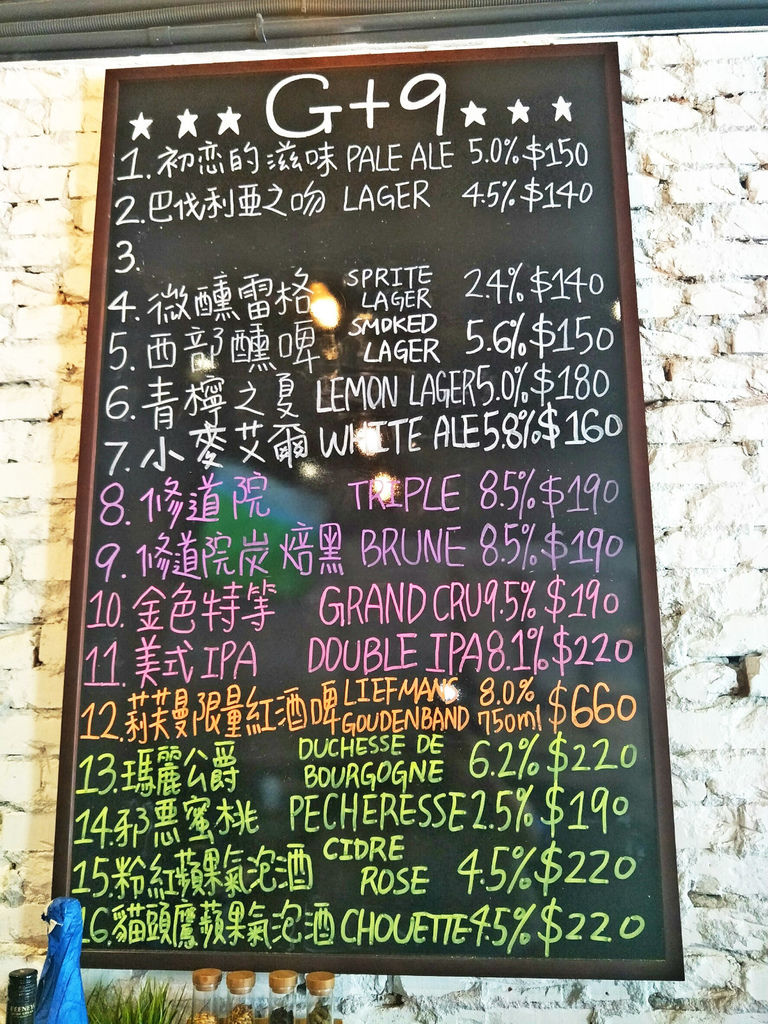 ★ ★ ★ G+9 ★ ★ ★
1. 初恋的滋味 PALE ALE 5.0% $150
2. 巴伐利亞之吻 LAGER 4.5% $140
3.
4. 微醺雷格 SPRITE LAGER 2.4% $140
5. 西部醺啤 SMOKED LAGER 5.6% $150
6. 青檸之夏 LEMON LAGER 5.0% $180
7. 小麥艾爾 WHITE ALE 5.8% $160
8. 修道院 TRIPLE 8.5% $190
9. 修道院炭焙黑 BRUNE 8.5% $190
10. 金色特等 GRAND CRU 9.5% $190
11. 美式IPA DOUBLE IPA 8.1% $220
12. 莉芙曼限量紅酒啤 LIEFMANS GOUDENBAND 8.0% 750ml $660
13. 瑪麗公爵 DUCHESSE DE BOURGOGNE 6.2% $220
14. 邪惡蜜桃 PECHERESSE 2.5% $190
15. 粉紅蘋果氣泡酒 CIDRE ROSE 4.5% $220
16. 貓頭鷹蘋果氣泡酒 CHOUETTE 4.5% $220